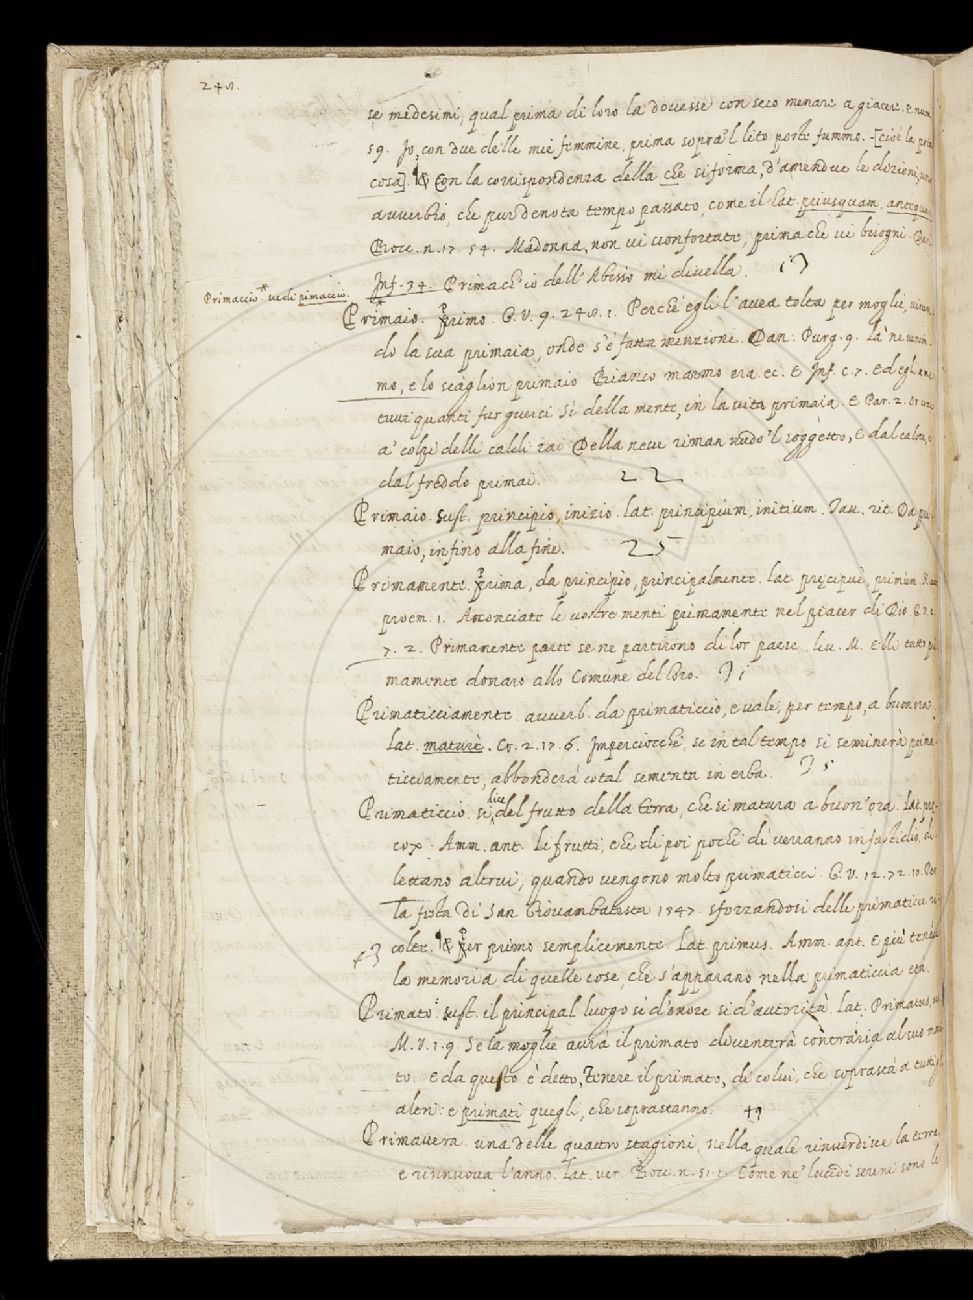 248.
se medesimi, qual prima di loro la dovesse con seco menare a giacere. E num.
59. Jo, con due delle mie femmine, prima sopra 'l lito posto fummo. [cioè la pra
cosa]. & Con la corrispondenza della che si forma, d'amendue le dizioni, uno
avverbio, che pur denota tempo passato, come il Lat. priusquam, antequam
Bocc. n. 17. 54. Madonna, non vi sconfortate, prima che vi bisogni. Dan.
Inf. 34. Primach'io dell'Abisso mi divella.
Primaccio * vedi pimaccio.
Primaio. Primo. G. V. 9. 248. 1. Perchè egli l'avea tolta per moglie, viven
do la sua primaia, onde s'è fatta menzione. Dan. Purg. 9. Là ne venim
mo, e lo scaglion primaio Bianco marmo era. ec. E Inf. c. 7. Ed egli a me
tutti quanti fur guerci Sì della mente, in la vita primaia. E Par. 2. Or come
a' colpi delli caldi rai Della neve riman nudo 'l soggetto, E dal calore, e
dal freddo primai. 22
Primaio. Sust. principio, inizio. lat. principium, initium. Tav. rit. Da pri
maio, infino alla fine. 25
Primamente. Prima, da principio, principalmente. lat. precipuè, primùm.
proem. 1. Acconciate le vostre menti primamente nel piacer di Dio. G. V. 1.
7. 2. Primamente parte se ne partirono di lor paese. liv. M. Elli tutto pri
mamente donaro allo Comune dell'oro. 31
Primaticciamente. avverb. da primaticcio, e vale, per tempo, a buon'ora.
Lat. maturè. Cr. 2. 17. 6. Imperciocchè, se in tal tempo si seminerà prima
ticciamente, abbonderà cotal sementa in erba. 35
Primaticcio. si dice del frutto della terra, che si matura a buon'ora. Lat. pre
cox. Amm. ant. Le frutti, che di poi pochi dì verranno in fastidio, di
lettano altrui, quando vengono molto primaticci. G. V. 12. 72. 10. Per
la festa di San Giovambatista 1347. sforzandosi delle primaticce ri
colte. & Per primo semplicemente. Lat. primus. Amm. ant. E più tende
43
la memoria di quelle cose, che s'apparano nella primaticcia età.
Primato. sust. il principal luogo sì d'onore sì d'autorità. Lat. Primatus, us.
M. V. 1. 9. Se la moglie avrà il primato diventerà contraria al suo mari
to. E da questo è detto, Tenere il primato, di colui, che soprastà a tutti gli
altri: e primati quegli, che soprastanno. 49
Primavera. una delle quattro stagioni, nella quale rinverdisce la terra
e rinnuova l'anno. Lat. ver. Bocc. n. 51. 1. Come ne' lucidi sereni sono le